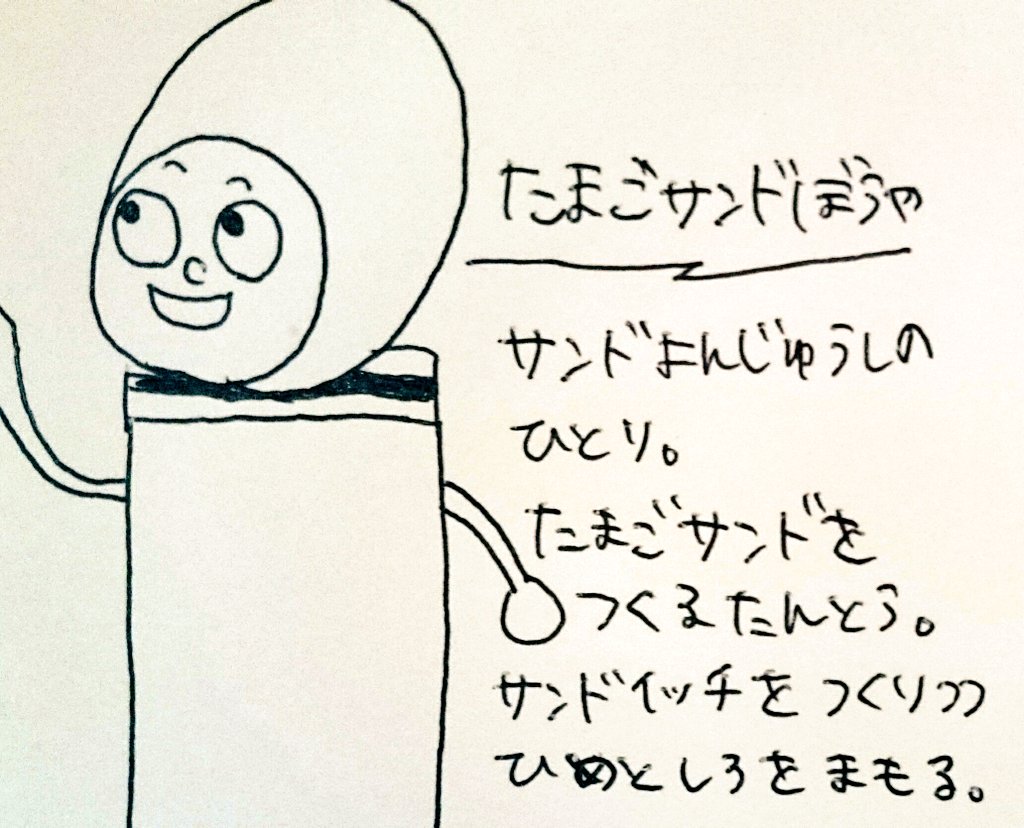 たまごサンドぼうや
サンドよんじゅうしの
ひとり。
たまごサンドを
つくるたんとう。
サンドイッチをつくりつつ
ひめとしろをまもる。